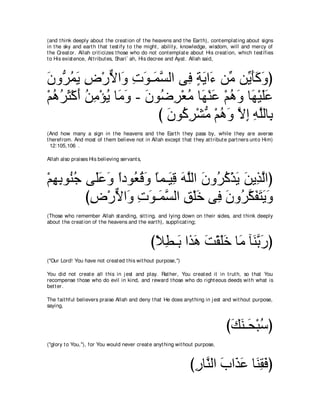 (and think deeply about the creation of the heavens and the Earth), contemplating about signs
in the sky and earth that testify to the might, ability, knowledge, wisdom, will and mercy of
the Creator. Allah criticizes those who do not contemplate about His creation, which testifies
to His existence, Attributes, Shari`ah, His decree and Ayat. Allah said,
(وَكَأَيِّن مِّنْ ءَايَةٍ فِى السَّمَـوَتِ وَالاٌّرْضِ يَمُرُّونَ
عَلَيْهَا وَهُمْ عَنْهَا مُعْرِضُونَ - وَمَا يُؤْمِنُ أَكْثَرُهُمْ
بِاللَّهِ إِلاَّ وَهُمْ مُّشْرِكُونَ )
(And how many a sign in the heavens and the Earth they pass by, while they are averse
therefrom. And most of them believe not in Allah except that they attribute partners unto Him)
12:105,106 .
Allah also praises His believing servants,
(الَّذِينَ يَذْكُرُونَ اللَّهَ قِيَـماً وَقُعُوداً وَعَلَى جُنُوبِهِمْ
وَيَتَفَكَّرُونَ فِى خَلْقِ السَّمَـوَتِ وَالاٌّرْضِ)
(Those who remember Allah standing, sitting, and lying down on their sides, and think deeply
about the creation of the heavens and the earth), supplicating;
(رَبَّنَآ مَا خَلَقْتَ هَذا بَـطِلاً)
("Our Lord! You have not created this without purpose,")
You did not create all this in jest and play. Rather, You created it in truth, so that You
recompense those who do evil in kind, and reward those who do righteous deeds with what is
better.
The faithful believers praise Allah and deny that He does anything in jest and without purpose,
saying,
(سُبْحَـنَكَ)
("glory to You,"), for You would never create anything without purpose,
(فَقِنَا عَذَابَ النَّارِ)